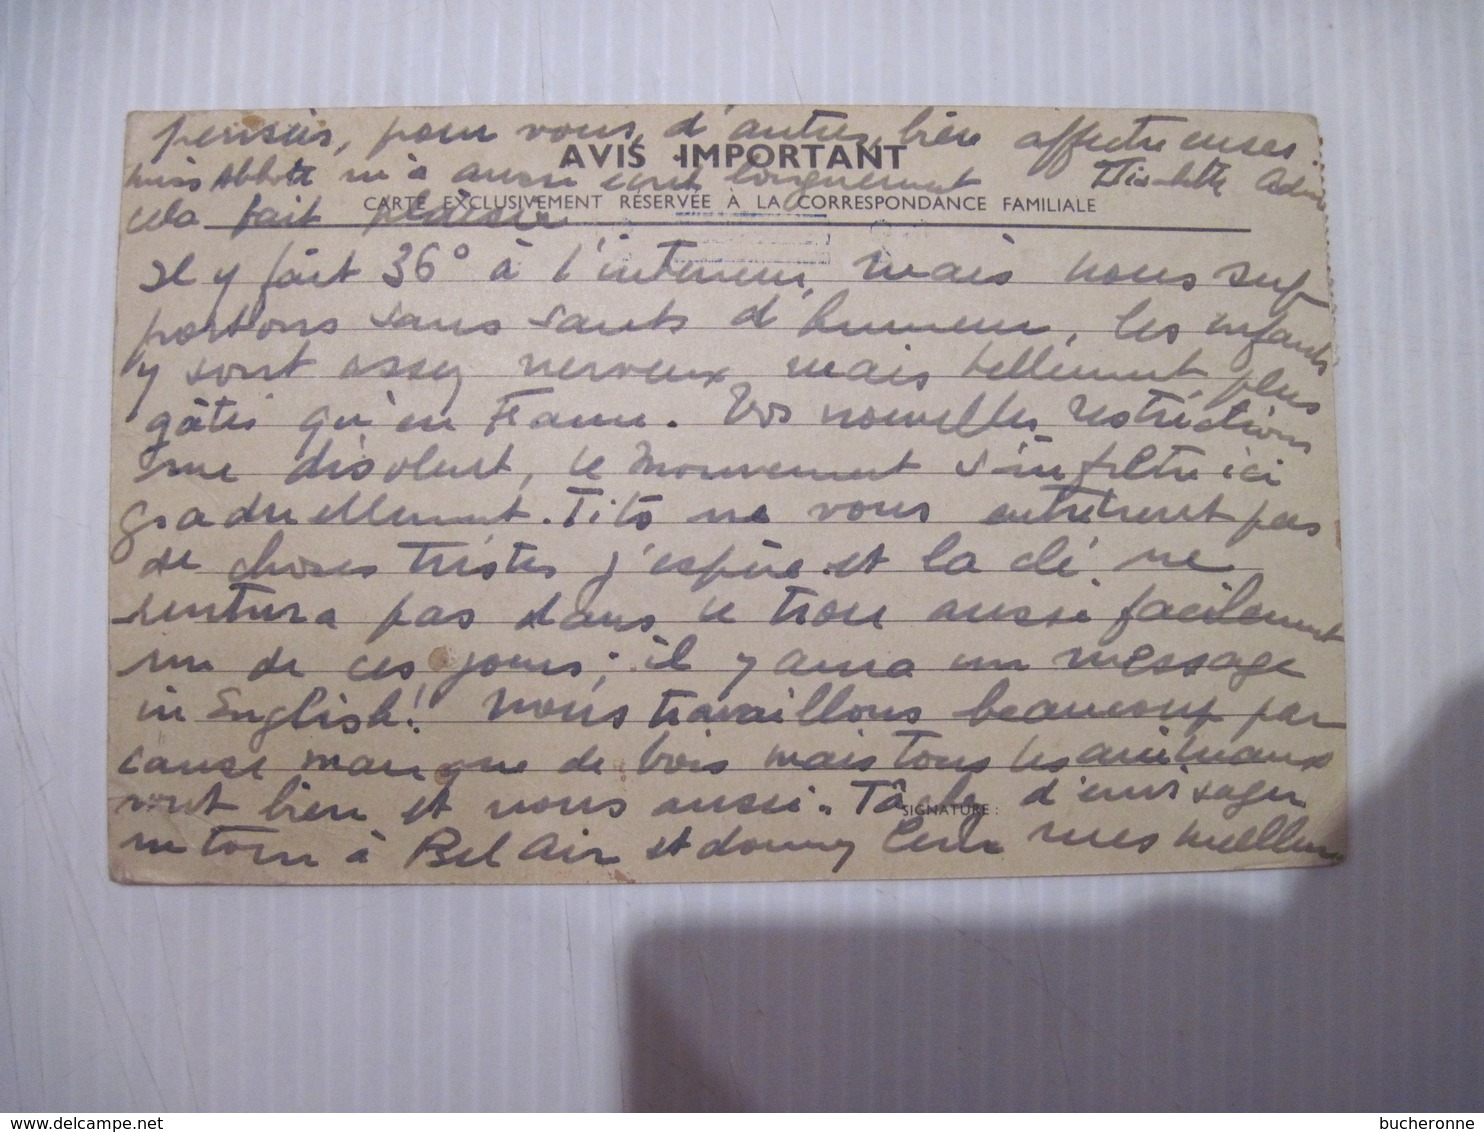 pensées, pour vous d'autres, bien affectueuses.
AVIS IMPORTANT
miss Abbott m'a aussi écrit longuement
CARTE EXCLUSIVEMENT RÉSERVÉE À LA CORRESPONDANCE FAMILIALE
cela fait plaisir
Il y fait 36° à l'interieur, mais nous sup
portons sans sauts d'humeur, les enfants
y sont assez nerveux mais tellement plus
gâtés qu'en France. Vos nouvelles restrictions
me désolent, le mouvement s'infiltre ici
graduellement. Tito ne vous entretient pas
de choses tristes j'espère et la clé ne
rentrera pas dans le trou aussi facilement
un de ces jours; il y aura un message
in English! Nous travaillons beaucoup par
cause manque de bois mais tous les animaux
vont bien et nous aussi. Tâche d'envisager
SIGNATURE :
retour à Bel Air et donnez leur mes meilleurs
bucheronne